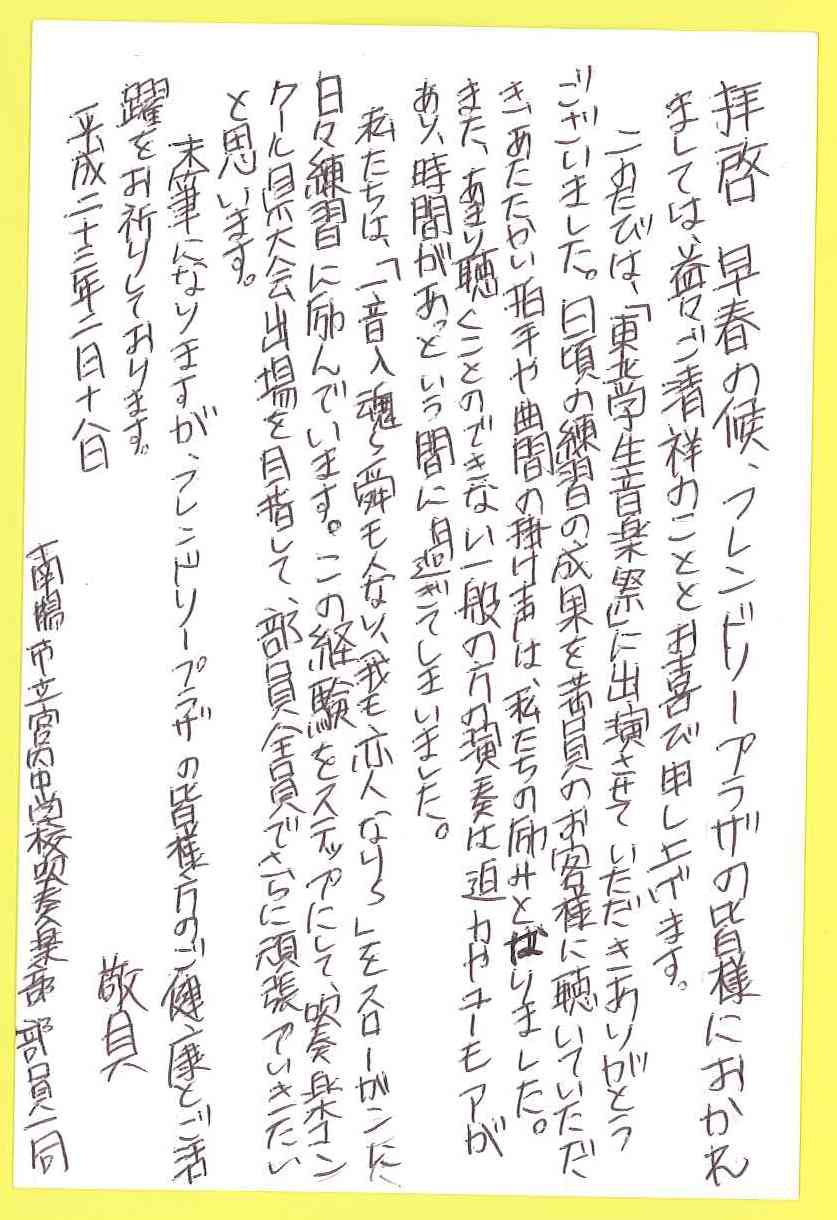 拝啓　早春の候、フレンドリープラザの皆様におかれ
ましては、益々ご清祥のこととお喜び申し上げます。
このたびは、「東北学生音楽祭」に出演させていただきありがとう
ございました。日頃の練習の成果を満員のお客様に聴いていただ
き、あたたかい拍手や曲間の掛け声は、私たちの励みとなりました。
また、あまり聴くことのできない一般の方の演奏は迫力やユーモアが
あり、時間があっという間に過ぎてしまいました。
私たちは、「一音入魂～舜も人なり、我も亦人なり～」をスローガンに
日々練習に励んでいます。この経験をステップにして、吹奏楽コン
クール県大会出場を目指して、部員全員でさらに頑張っていきたい
と思います。
末筆になりますが、フレンドリープラザの皆様方のご健康とご活
躍をお祈りしております。
敬具
平成二十三年二月十八日
南陽市立宮内中学校吹奏楽部　部員一同